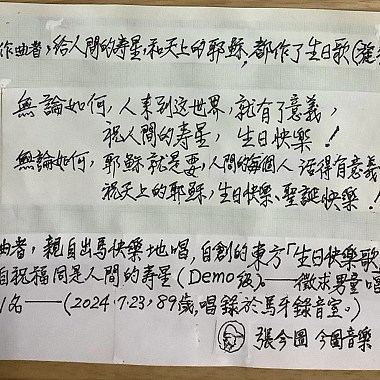 作曲者,給人間的寿星,和天上的耶穌,都作了生日歌(
無論如何,人来到这世界,就有了意義,
祝人間的寿星,生日快樂!
無論如何,耶穌就是要,人間的每個人活得有意義
祝天上的耶穌,生日快樂、聖誕快樂!
曲者,親自出馬快樂地唱,自創的東方「生日快樂歌
自祝福同是人間的寿星(Demo級)。——徵求男童唱
1名——(2024.7.23,89歲,唱錄於馬牙錄音室。)
張今圖 今圖音樂